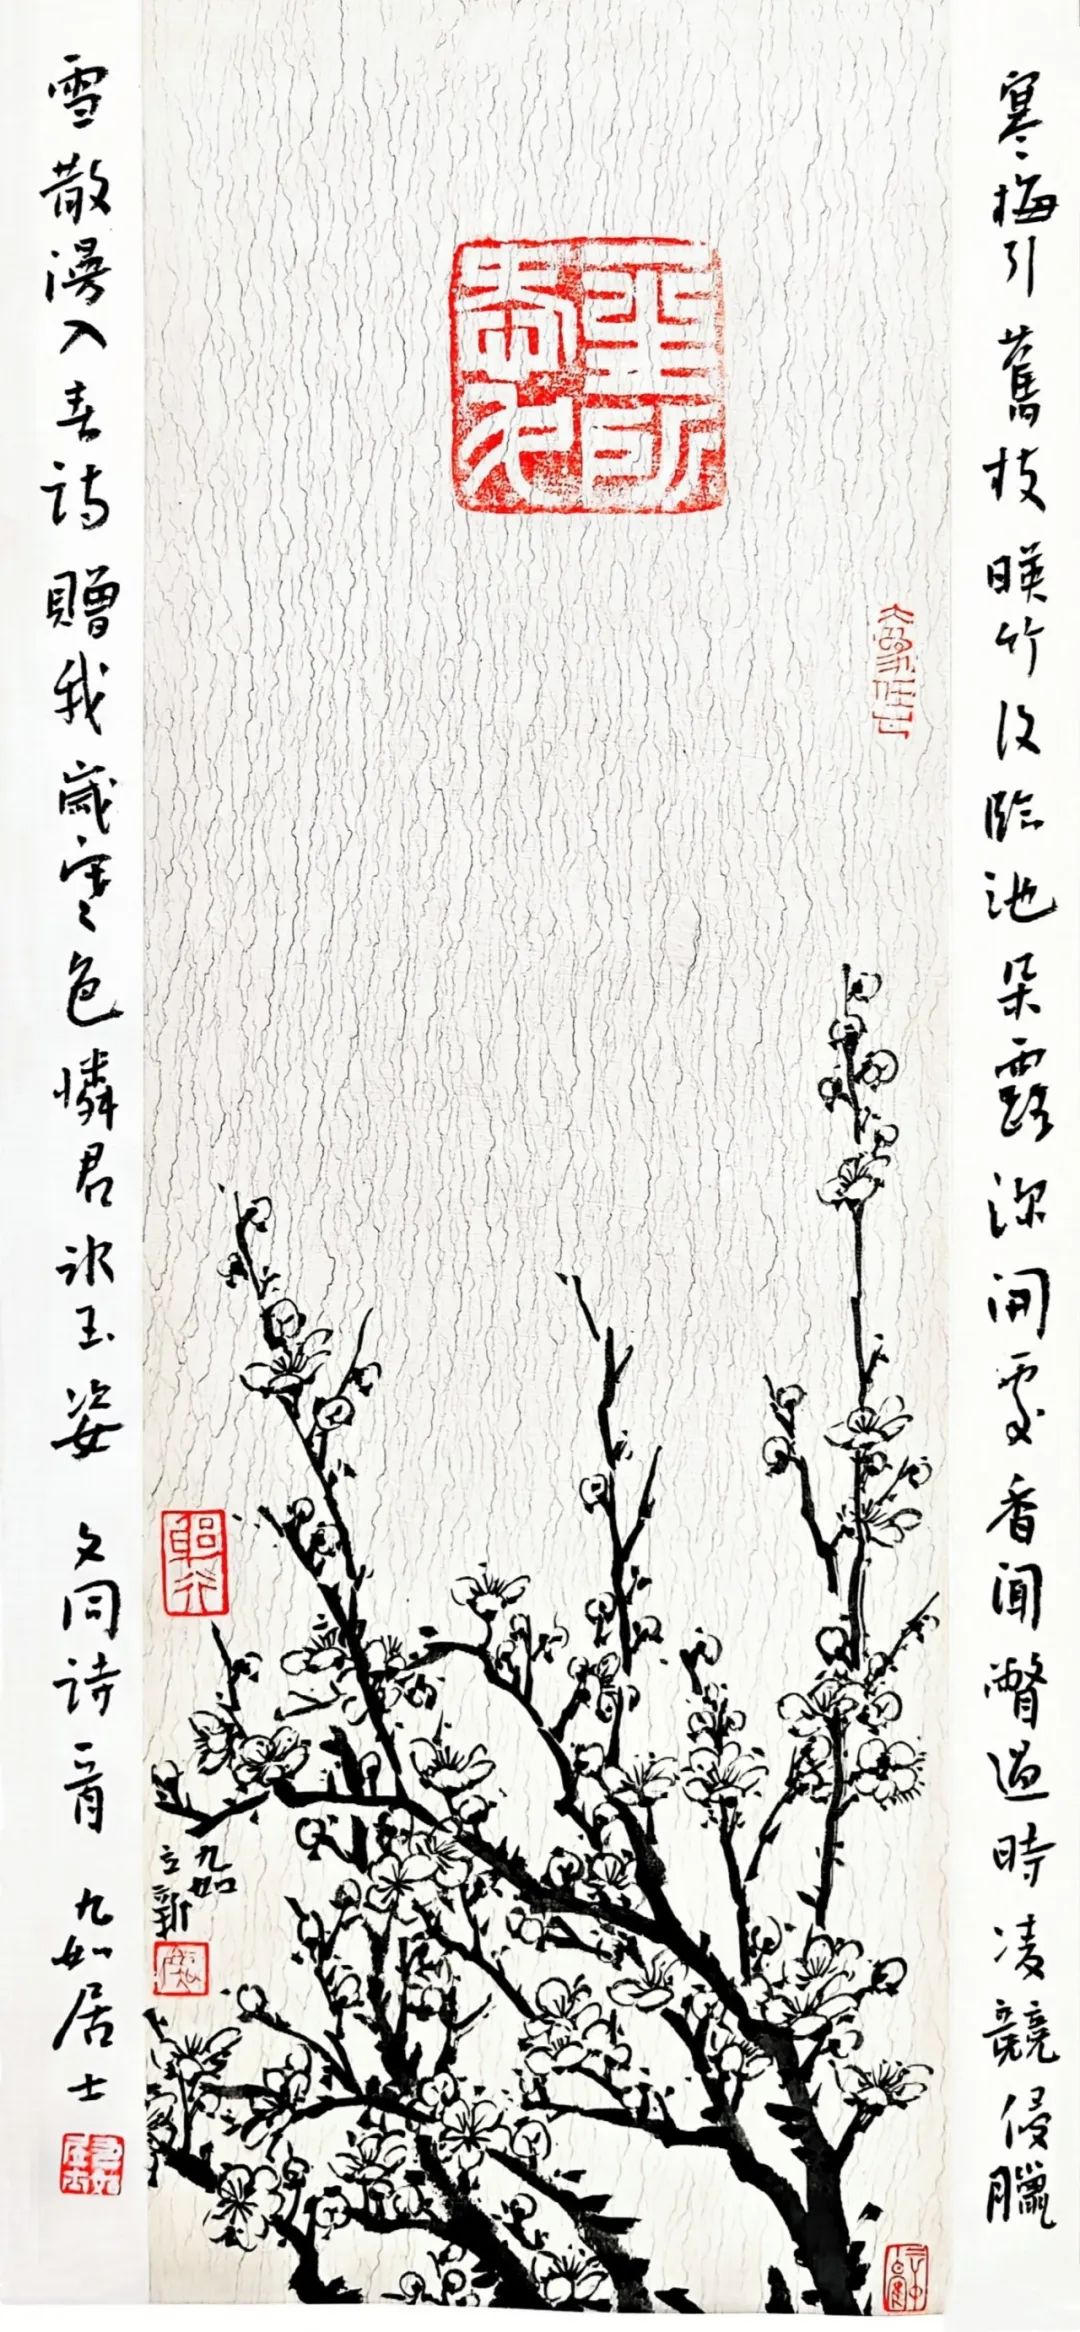 寒梅引舊枝暎竹復臨池朵露深開處香聞瞥過時凌競侵臘
雪散漫入春詩贈我歲寒色憐君冰玉姿 文同詩 九如居士
九如
立新